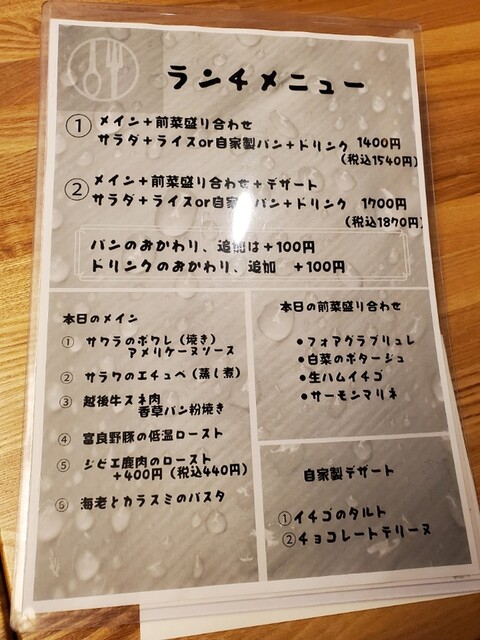 ランチメニュー
① メイン+前菜盛り合わせ
サラダ+ライスor自家製パン+ドリンク 1400円
(税込1540円)
② メイン+前菜盛り合わせ+デザート
サラダ+ライスor自家製パン+ドリンク 1700円
(税込1870円)
パンのおかわり、追加は+100円
ドリンクのおかわり、追加 +100円
本日のメイン
① サワラのポワレ(焼き)
アメリケーヌソース
② サラワのエチュベ(蒸し煮)
③ 越後牛スネ肉
香草パン粉焼き
④ 富良野豚の低温ロースト
⑤ ジビエ鹿肉のロースト
+400円(税込440円)
⑥ 海老とカラスミのパスタ
本日の前菜盛り合わせ
・フォアグラブリュレ
・白菜のポタージュ
・生ハムイチゴ
・サーモンマリネ
自家製デザート
①イチゴのタルト
②チョコレートテリーヌ